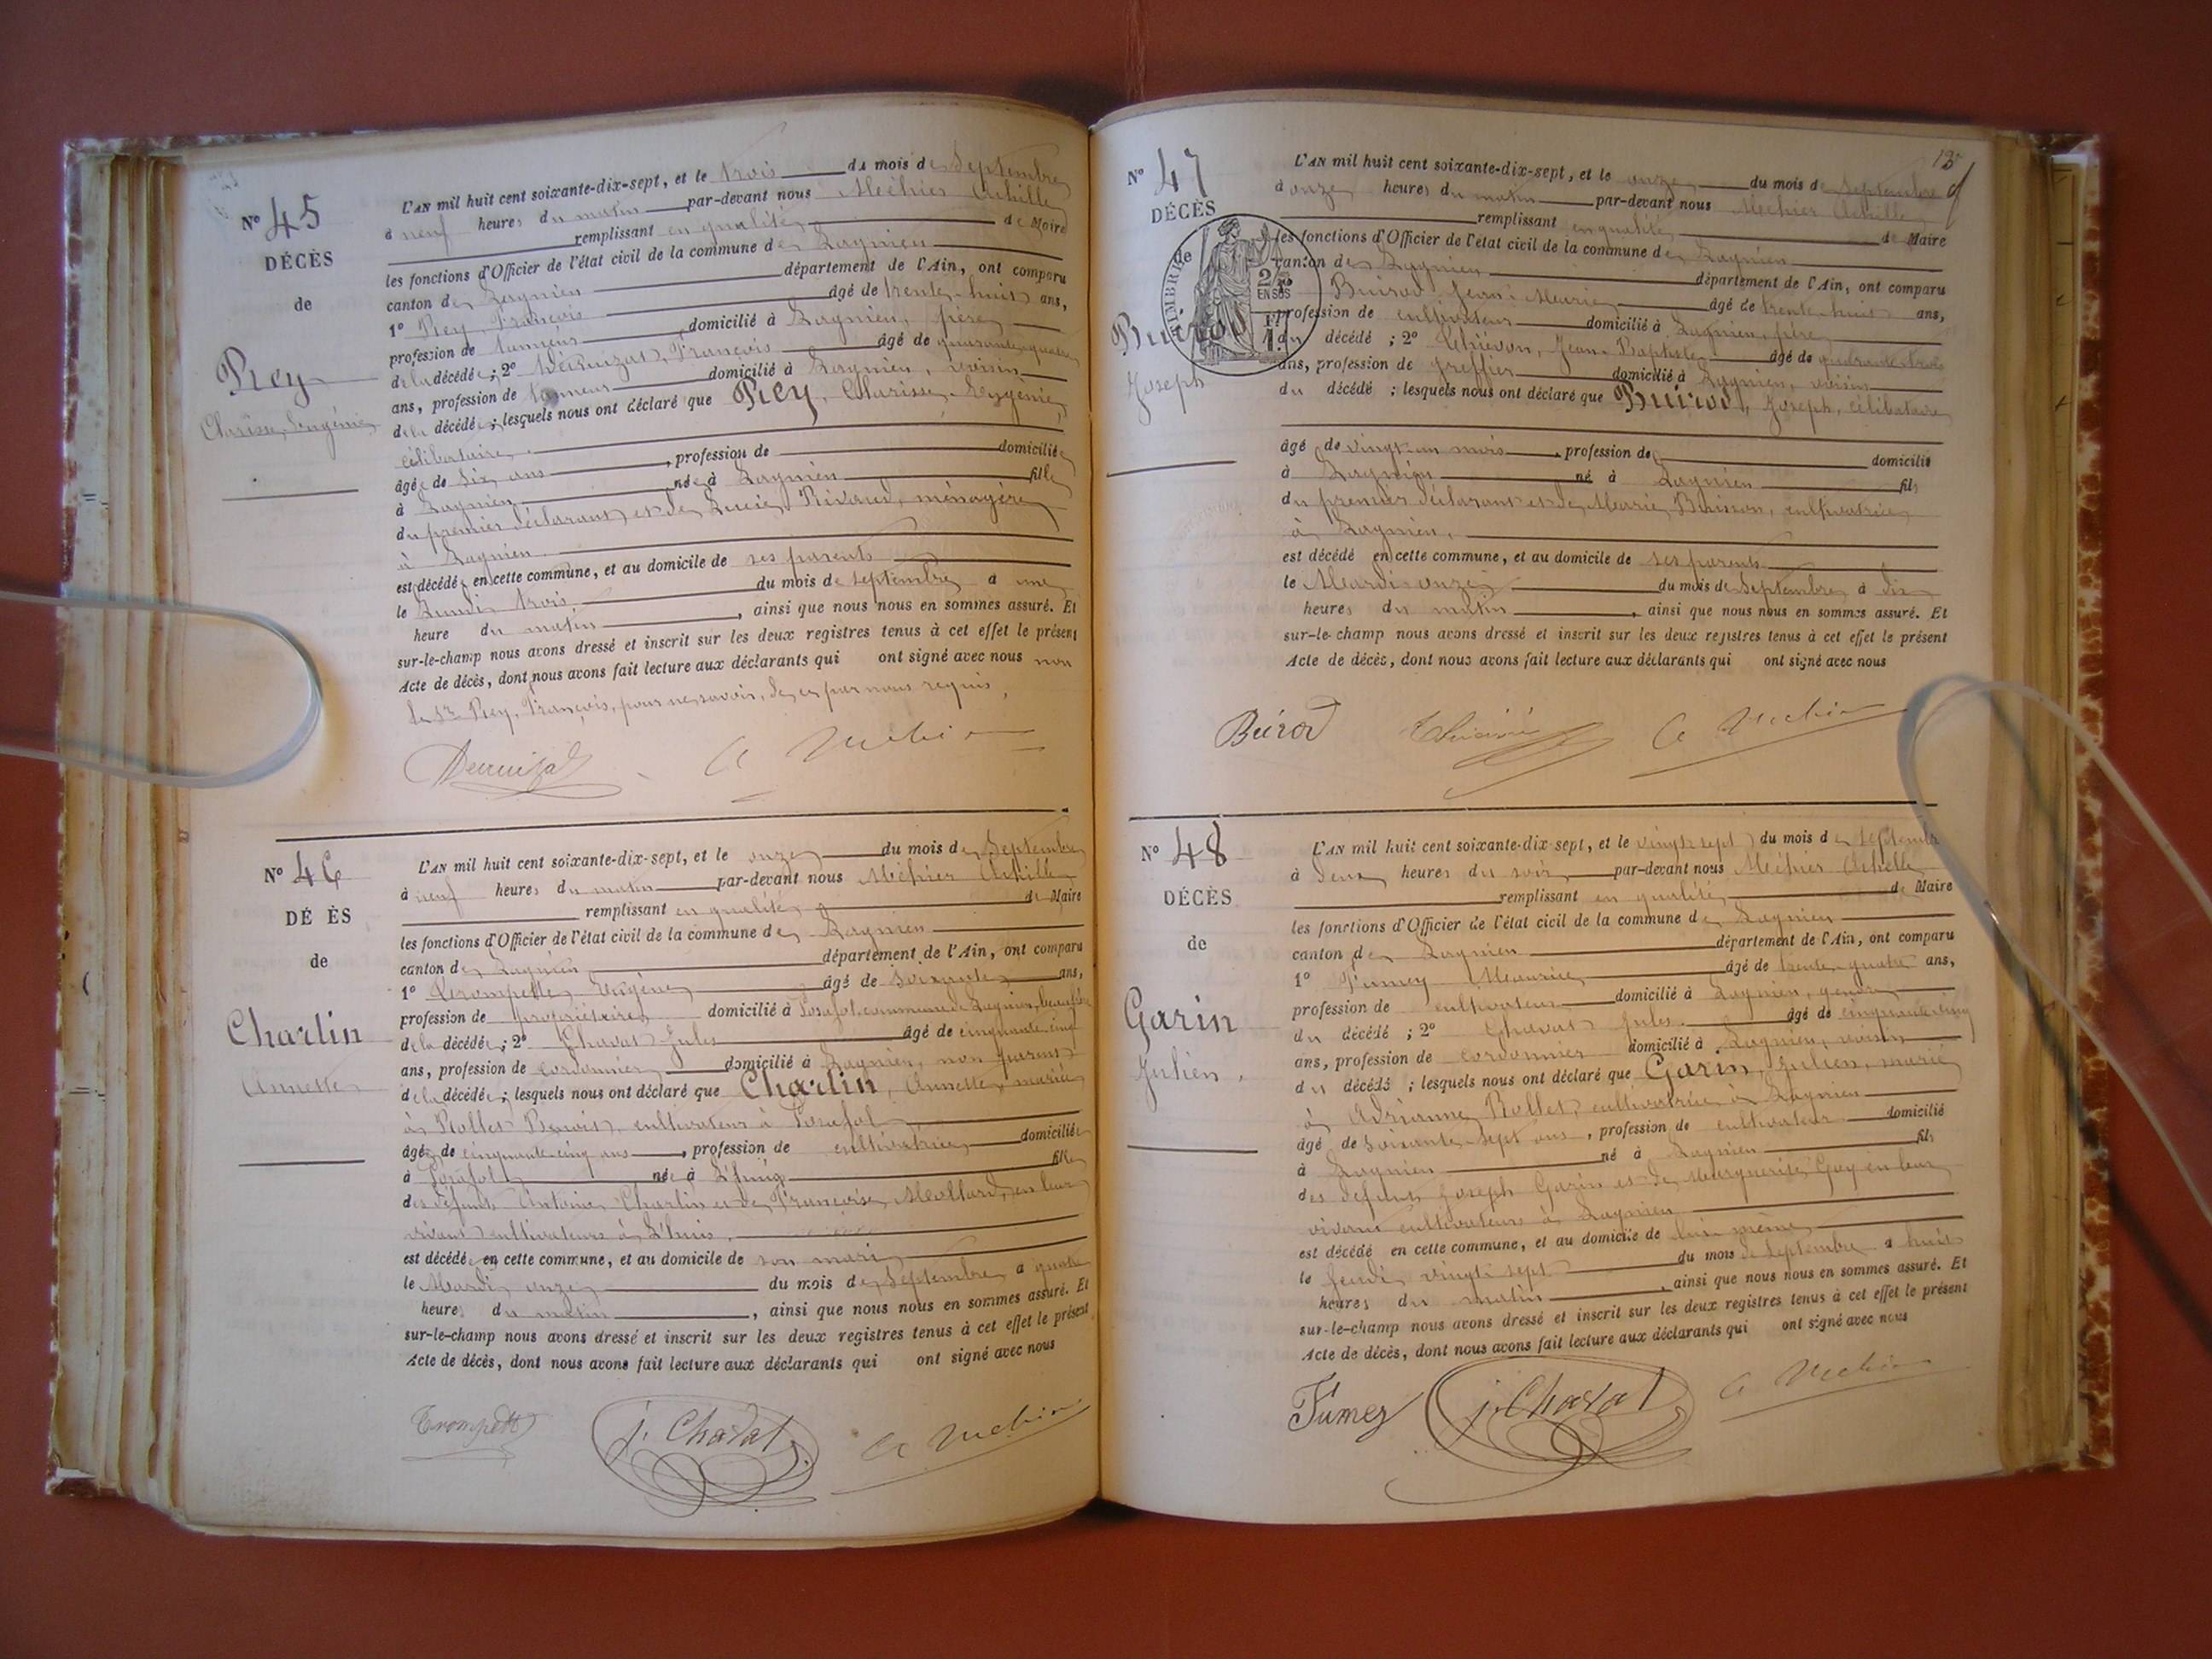 N° 45
DÉCÈS
de
Rey
Clarisse, Eugénie
L'AN mil huit cent soixante-dix-sept, et le trois du mois de Septembre
à neuf heures du matin par-devant nous Méhier Achille
remplissant en qualité de Maire
les fonctions d'Officier de l'état civil de la commune de Lagnieu
canton de Lagnieu département de l'Ain, ont comparu
1° Rey, François âgé de trente-huit ans,
profession de tanneur domicilié à Lagnieu, père
de la décédée ; 2° François âgé de quarante quatre
ans, profession de tanneur domicilié à Lagnieu, voisin
de la décédée ; lesquels nous ont déclaré que Rey, Clarisse Eugénie,
célibataire,
âgée de six ans, profession de domiciliée
à Lagnieu née à Lagnieu fille
du premier déclarant et de Lucie Rivaud, ménagère
à Lagnieu
est décédée en cette commune, et au domicile de ses parents
le Lundi trois du mois de septembre à une
heure du matin, ainsi que nous nous en sommes assuré. Et
sur-le-champ nous avons dressé et inscrit sur les deux registres tenus à cet effet le présent
Acte de décès, dont nous avons fait lecture aux déclarants qui ont signé avec nous non
le Sr Rey, François, pour ne savoir, de ce par nous requis,
A Mehier
N° 46
DÉ ÈS
de
Charlin
Annette
L'AN mil huit cent soixante-dix-sept, et le onze du mois de Septembre
à neuf heures du matin par-devant nous Méhier Achille
remplissant en qualité de Maire
les fonctions d'Officier de l'état civil de la commune de Lagnieu
canton de Lagnieu département de l'Ain, ont comparu
1° Trompette Eugène âgé de soixante ans,
profession de propriétaire domicilié à Posafol commune de Lagnieu, beau-frère
de la décédée ; 2° Chavat Jules âgé de cinquante cinq
ans, profession de cordonnier domicilié à Lagnieu, non parent
de la décédée ; lesquels nous ont déclaré que Charlin, Annette, mariée
à Rollet Benoit, cultivateur à Posafol
âgée de cinquante cinq ans, profession de cultivatrice domiciliée
à Posafol née à L'huis fille
des défunts Antoine Charlin et de Françoise Mollard, en leur
vivant cultivateurs à L'huis,
est décédée en cette commune, et au domicile de son mari
le Mardi onze du mois de Septembre à quatre
heures du matin, ainsi que nous nous en sommes assuré. Et
sur-le-champ nous avons dressé et inscrit sur les deux registres tenus à cet effet le présent
Acte de décès, dont nous avons fait lecture aux déclarants qui ont signé avec nous
Trompette j. Chavat A Mehier
13
N° 47
DÉCÈS
TIMBRE
25
EN SUS
Buirod
Joseph
L'AN mil huit cent soixante-dix-sept, et le onze du mois de Septembre
à onze heures du matin par-devant nous Méhier Achille
remplissant en qualité de Maire
les fonctions d'Officier de l'état civil de la commune de Lagnieu
canton de Lagnieu département de l'Ain, ont comparu
Buirod Jean-Marie âgé de trente-huit ans,
profession de cultivateur domicilié à Lagnieu, père
du décédé ; 2° Thiévon, Jean-Baptiste âgé de quarante trois
ans, profession de greffier domicilié à Lagnieu, voisin
du décédé ; lesquels nous ont déclaré que Buirod, Joseph, célibataire
âgé de vingt un mois, profession de domicilié
à Lagnieu né à Lagnieu fils
du premier déclarant et de Marie Buisson, cultivatrice
à Lagnieu,
est décédé en cette commune, et au domicile de ses parents
le Mardi onze du mois de Septembre à dix
heures du matin, ainsi que nous nous en sommes assuré. Et
sur-le-champ nous avons dressé et inscrit sur les deux registres tenus à cet effet le présent
Acte de décès, dont nous avons fait lecture aux déclarants qui ont signé avec nous
Buirod A Mehier
N° 48
DÉCÈS
de
Garin
Julien,
L'AN mil huit cent soixante-dix-sept, et le vingt sept du mois de septembre
à deux heures du soir par-devant nous Méhier Achille
remplissant en qualité de Maire
les fonctions d'Officier de l'état civil de la commune de Lagnieu
canton de Lagnieu département de l'Ain, ont comparu
1° Fumey Maurice âgé de trente-quatre ans,
profession de cultivateur domicilié à Lagnieu, gendre
du décédé ; 2° Chavat Jules âgé de cinquante cinq
ans, profession de cordonnier domicilié à Lagnieu, voisin
du décédé ; lesquels nous ont déclaré que Garin, Julien, marié
à Adrianne Rollet, cultivatrice à Lagnieu
âgé de soixante-sept ans, profession de cultivateur domicilié
à Lagnieu né à Lagnieu fils
des défunts Joseph Garin et de Marguerite Guy en leur
vivant cultivateurs à Lagnieu
est décédé en cette commune, et au domicile de lui même
le Jeudi vingt-sept du mois de Septembre à huit
heures du matin, ainsi que nous nous en sommes assuré. Et
sur-le-champ nous avons dressé et inscrit sur les deux registres tenus à cet effet le présent
Acte de décès, dont nous avons fait lecture aux déclarants qui ont signé avec nous
Fumey j. Chavat A Mehier